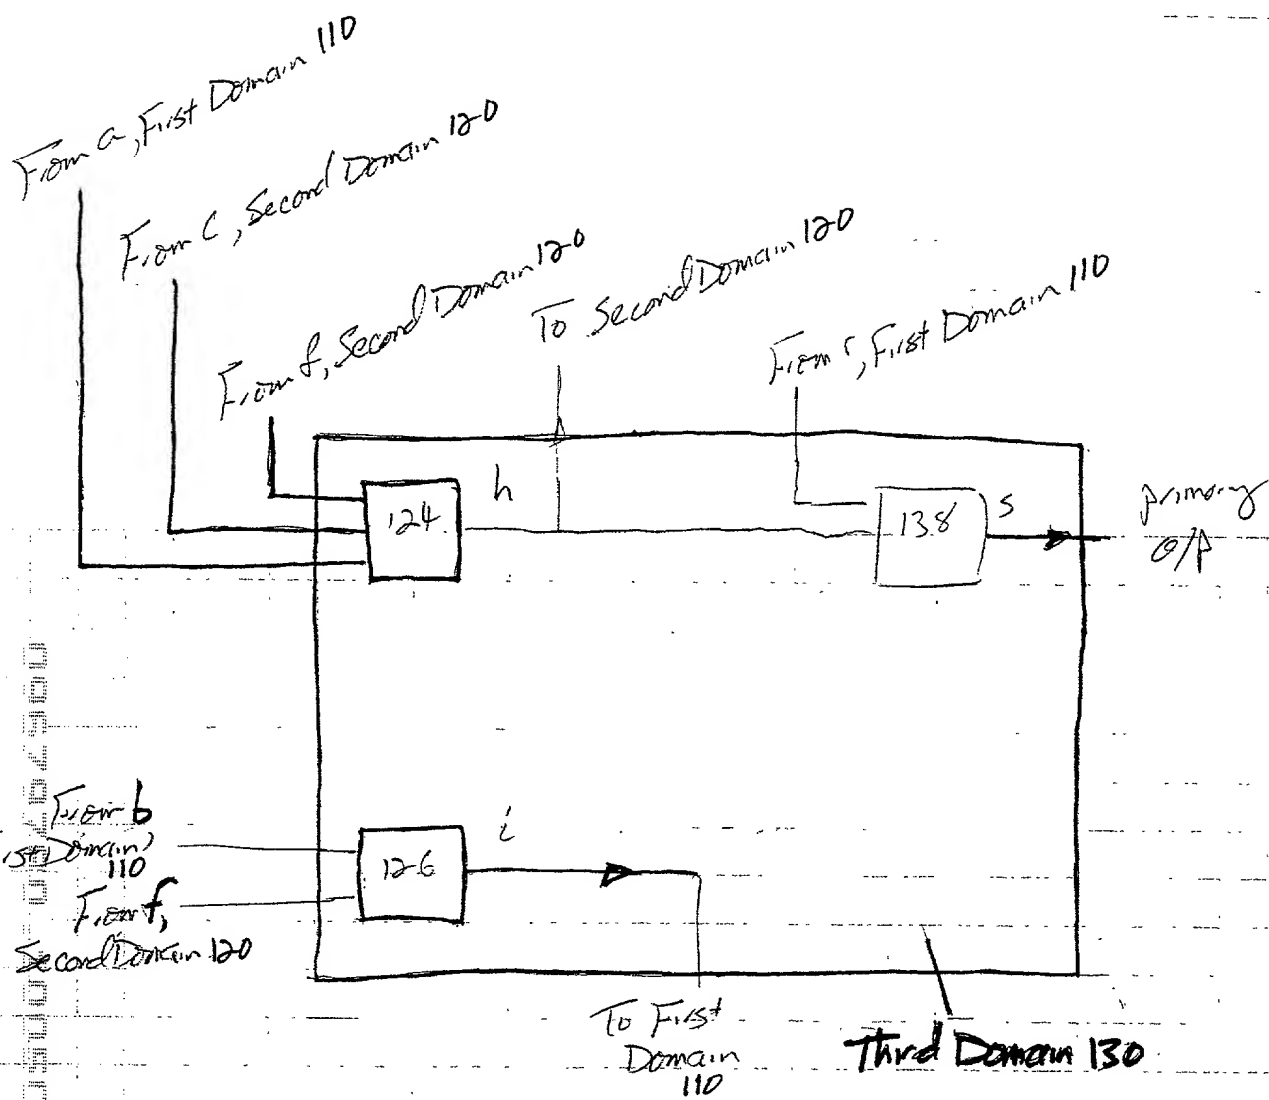 From a, First Domain 110
From c, Second Domain 120
From f, Second Domain 120
To Second Domain 120
From r, First Domain 110
h
124
138
s
primary
O/P
From b
110
i
126
From f,
Second Domain 120
To First
Domain
110
Third Domain 130